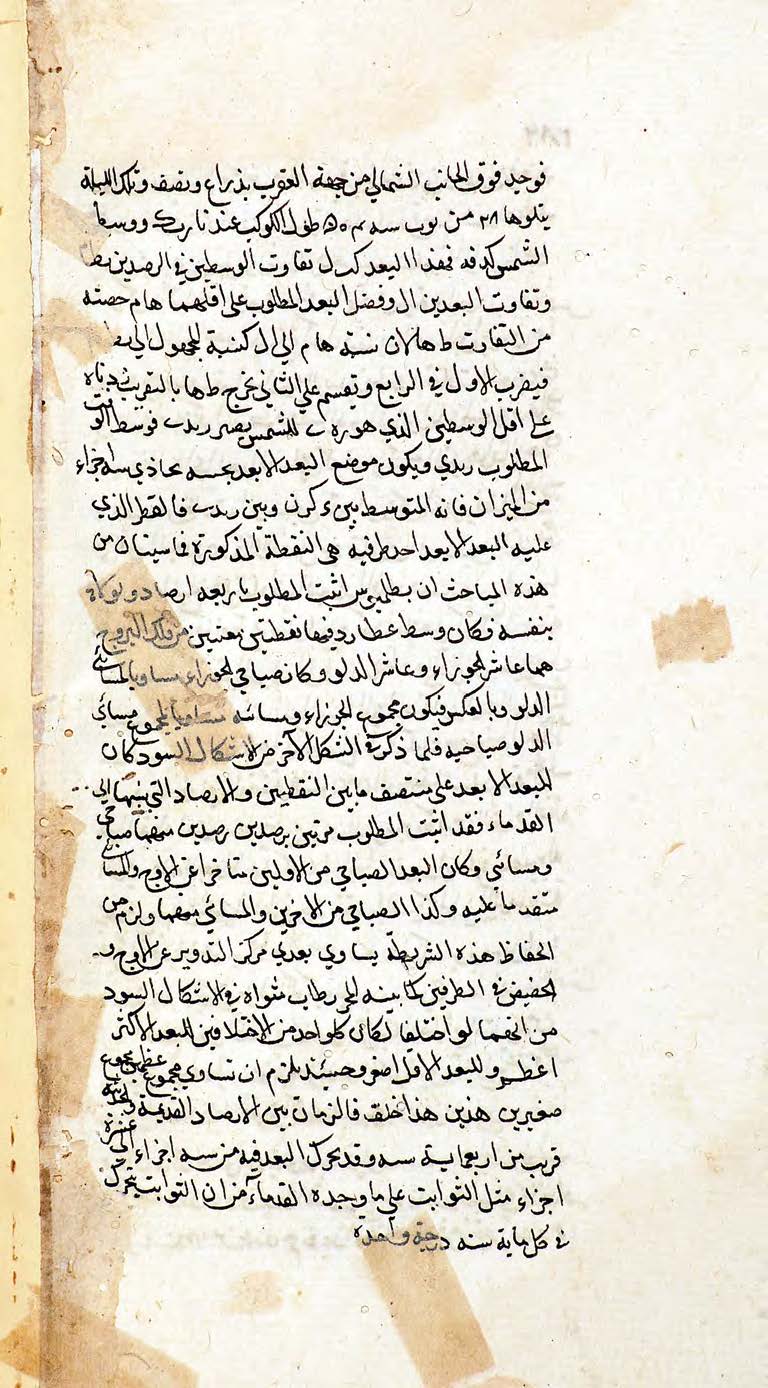 فوجد فوق الجانب الشمالي من جبهة العقرب بذراع ونصف وتلك الليلة
يتلوها ٢٨ من توت سنه طول الكوكب عند تاريخ ووسط
الشمس فهذا البعد تفاوت الوسطين في الرصدين
وتفاوت البعدين ال وفضل البعد المطلوب على اقلهما هام حصته
من التفاوت ط ها لان نسبة هام الي ال كنسبة المجهول الي
فيضرب الاول في الرابع ويقسم علي الثاني يخرج ط ها بالتقريب زدناه
علي اقل الوسطين الذي هو للشمس يصير فوسط الوقت
المطلوب ويكون موضع البعد الابعد بحسبه يحاذي ستة اجزاء
من الميزان فانه المتوسط بين وبين فالقطر الذي
عليه البعد الابعد احد طرفيه هي النقطة المذكورة فاستبان من
هذه المباحث ان بطلميوس اثبت المطلوب باربعه ارصاد تولاه
بنفسه وكان وسط عطارد فيها نقطتين معنتين من فلك البروج
هما عاشر الجوزاء وعاشر الدلو وكان صباحي الجوزاء مساويا لمسائي
الدلو وبالعكس فيكون مجموع الجوزاء ومسائه مساويا لمجموع مسائي
الدلو صباحيه فلما ذكر في الشكل الآخر من الاشكال السود كان
البعد الابعد على منتصف ما بين النقطتين والارصاد التي نسبها الي
القدماء فقد اثبت المطلوب مرتين برصدين رصدين منهما صباحي
ومسائي وكان البعد الصباحي من الاولين متاخرا عن الاوج والمسائي
متقدما عليه وكذا الصباحي من الاخرين والمسائي منهما ولزم من
الحفاظ هذه الشريطة يساوي بعدي مركز التدوير عن الاوج و
الحضيض في الطرفين كما بينه الحبر طاب مثواه في الاشكال السود
من انهما لو اختلفا لكان كل واحد من الاختلافين للبعد الاكثر
اعظم وللبعد الاقل اصغر وحينئذ يلزم ان تساوي مجموع عظمين مجموع
صغيرين هذين هذا خلف فالزمان بين الارصاد القديمة والحديثة
قريب من اربعماية سنه وقد تحرك البعد فيه من سته اجزاء الي عشرة
اجزاء مثل الثوابت علي ما وجده القدماء من ان الثوابت يتحرك
في كل ماية سنه درجة واحدة